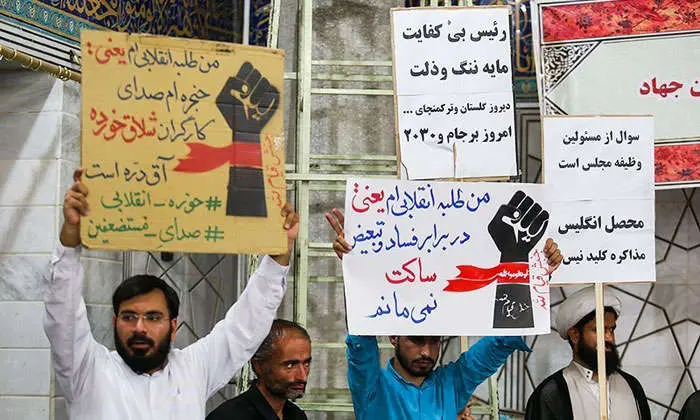 من طلبه انقلابی ام یعنی:
حنجره ام صدای
کارگران شلاق خورده
آق دره است
#حوزه_انقلابی
#صدای_مستضعفین
رئیس بی کفایت
مایه ننگ وذلت
دیروز گلستان وترکمنچای ...
امروز برجام و ۲۰۳۰
من طلبه انقلابی ام یعنی:
در برابر فساد و تبعیض
ساکت
نمی مانم
سوال از مسئولین
وظیفه مجلس است
محصل انگلیس
مذاکره کلید نیس
ن جهاد